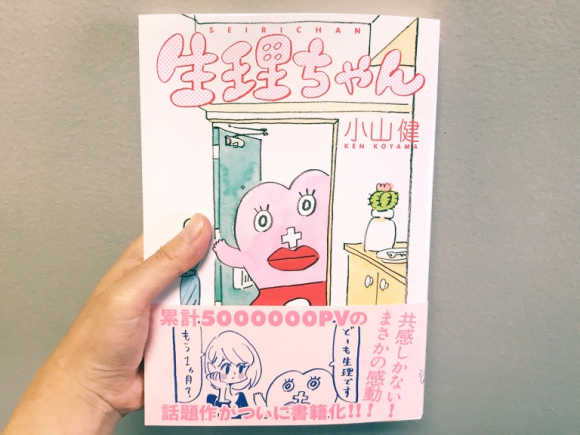 SEIRICHAN
生理ちゃん
小山健
KEN KOYAMA
累計5000000PVの
共感しかない！
まさかの感動！
どーも生理です
もう1ヵ月？
話題作がついに書籍化!!